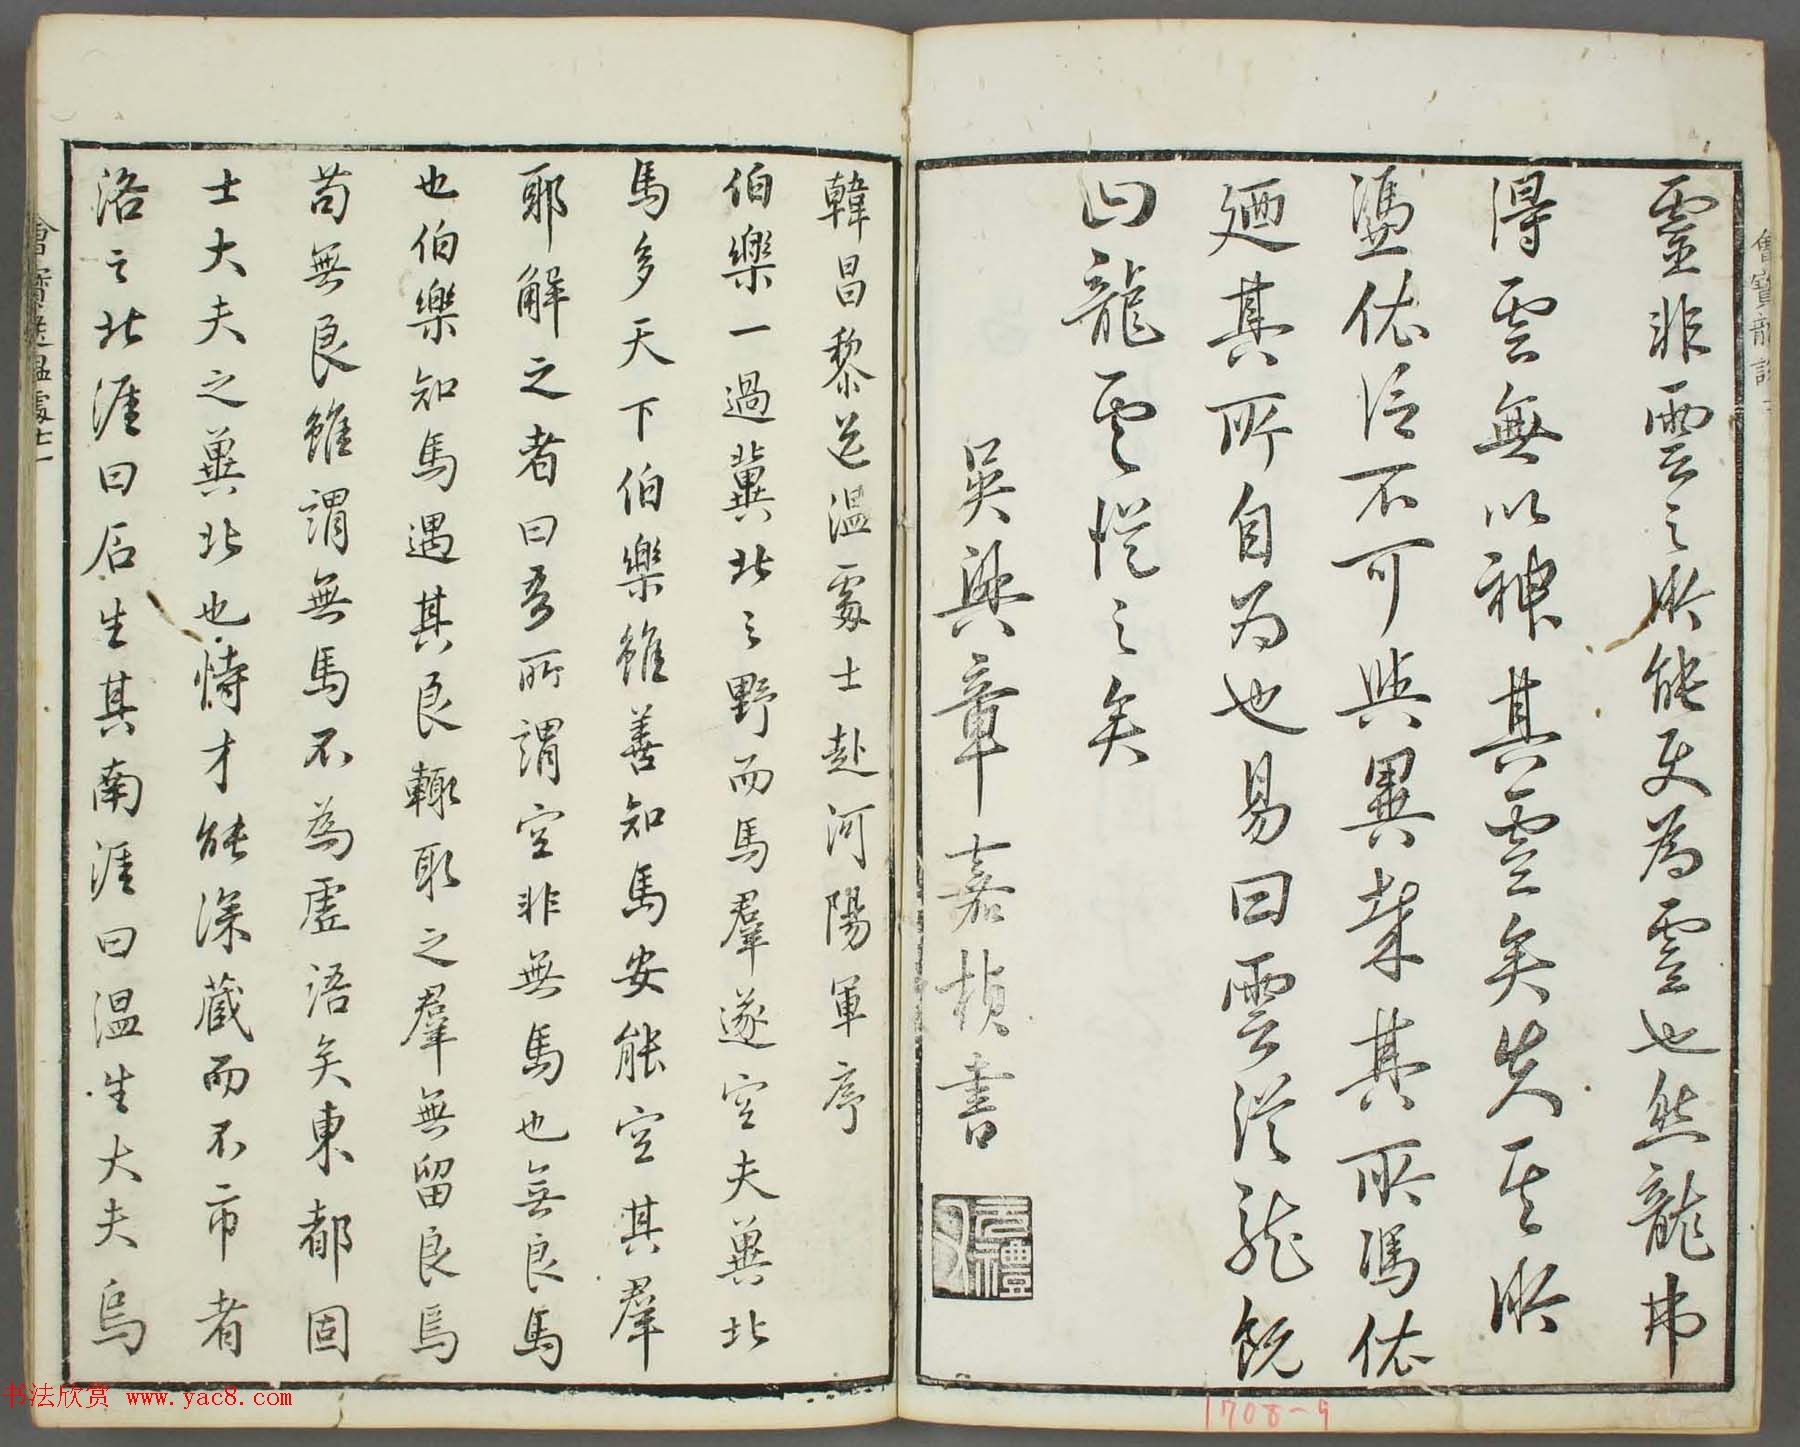 靈非雲之所能使為靈也然龍弗
得雲無以神其靈矣失其所
憑依信不可與異哉其所馮依
廼其所自为也易曰雲從龍既
曰龍雲從之矣
吳興章嘉楨書
韓昌黎送温處士赴河陽軍序
伯樂一過冀北之野而馬羣遂空夫冀北
馬多天下伯樂雖善知馬安能空其羣
耶解之者曰吾所謂空非無馬也無良馬
也伯樂知馬遇其良輒取之羣無留良焉
苟無良雖謂無馬不為虛語矣東都固
士大夫之冀北也恃才能深藏而不市者
洛之北涯曰石生其南涯曰温生大夫烏
會寶送温處士
會寶龍說
1708-9
书法欣赏 www.yac8.com